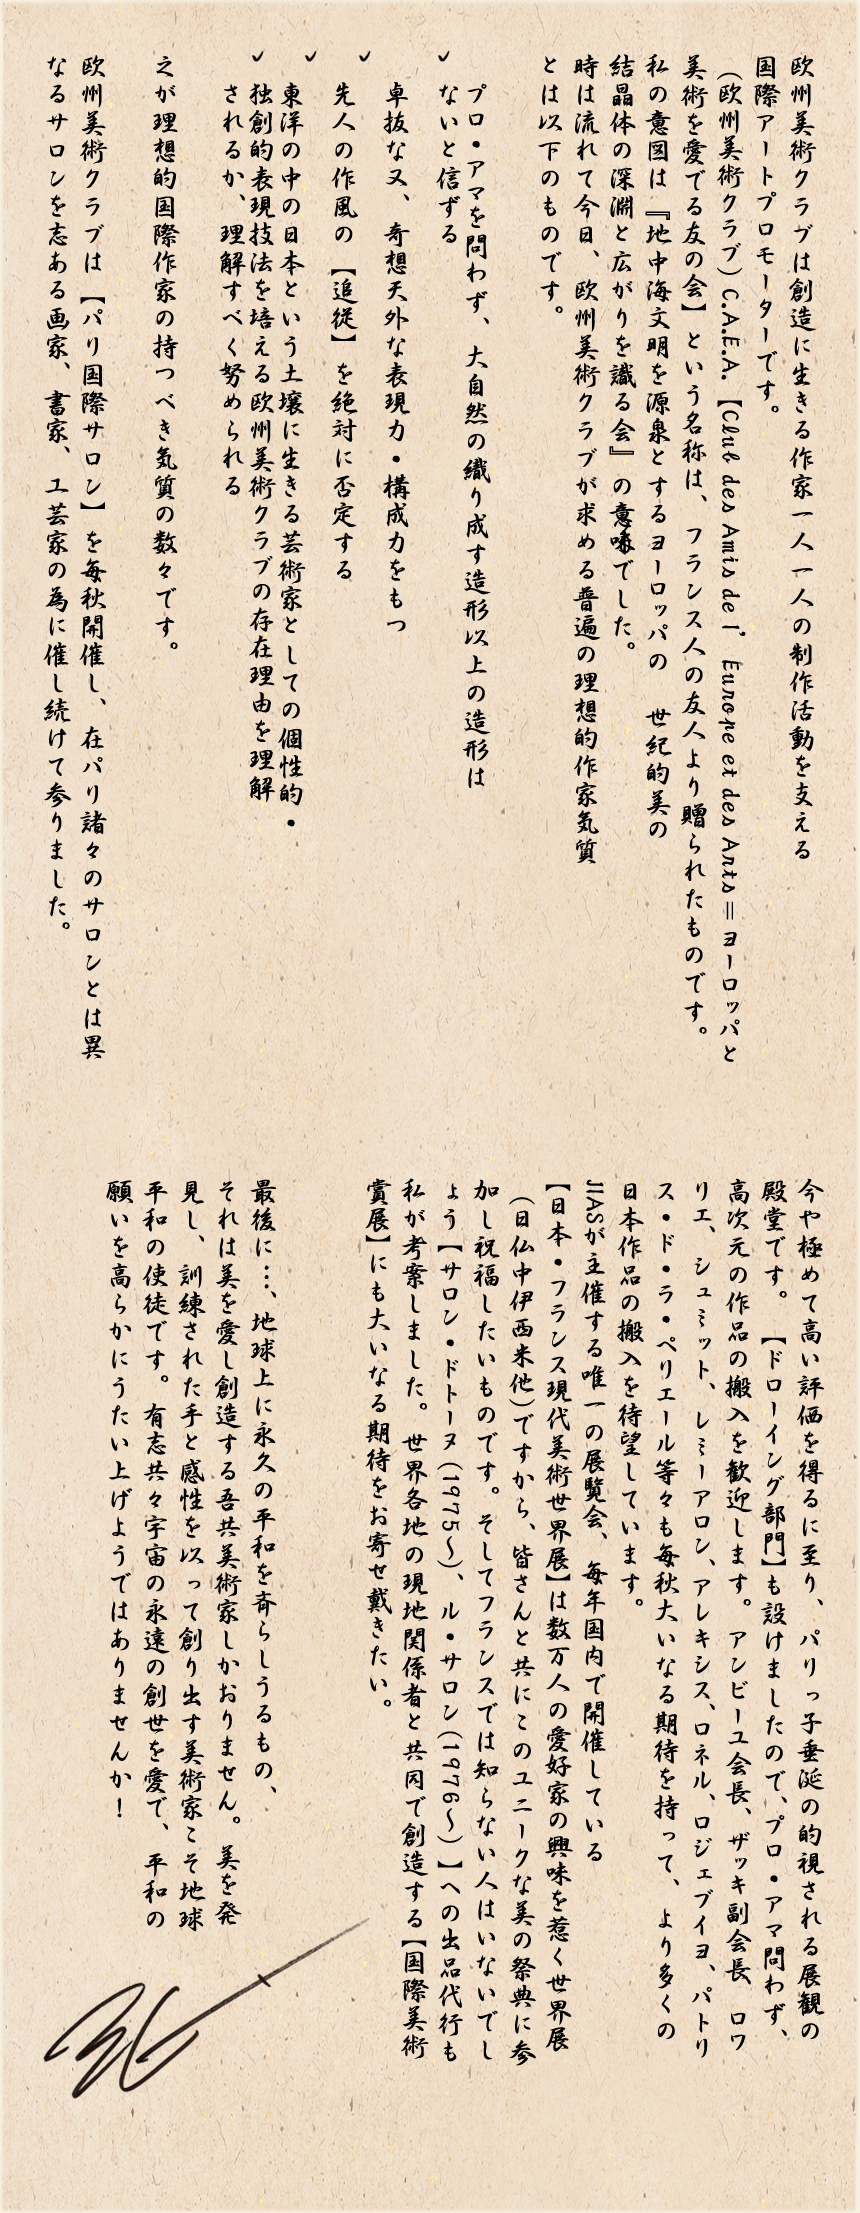 欧州美術クラブは創造に生きる作家一人一人の制作活動を支える
国際アートプロモーターです。
（欧州美術クラブ）C.A.E.A.【Club des Amis de l’Europe et des Arts＝ヨーロッパと
美術を愛でる友の会】という名称は、フランス人の友人より贈られたものです。
私の意図は『地中海文明を源泉とするヨーロッパの 世紀的美の
結晶体の深淵と広がりを識る会』の意喩でした。
時は流れて今日、欧州美術クラブが求める普遍の理想的作家気質
とは以下のものです。
✓ プロ・アマを問わず、大自然の織り成す造形以上の造形は
ないと信ずる
✓ 卓抜な又、奇想天外な表現力・構成力をもつ
✓ 先人の作風の【追従】を絶対に否定する
✓ 東洋の中の日本という土壌に生きる芸術家としての個性的・
独創的表現技法を培える欧州美術クラブの存在理由を理解
されるか、理解すべく努められる
之が理想的国際作家の持つべき気質の数々です。
欧州美術クラブは【パリ国際サロン】を毎秋開催し、在パリ諸々のサロンとは異
なるサロンを志ある画家、書家、工芸家の為に催し続けて参りました。
今や極めて高い評価を得るに至り、パリっ子垂涎の的視される展観の
殿堂です。【ドローイング部門】も設けましたので、プロ・アマ問わず、
高次元の作品の搬入を歓迎します。アンビーユ会長、ザッキ副会長、ロワ
リエ、シュミット、レミーアロン、アレキシス、ロネル、ロジェブイヨ、パトリ
ス・ド・ラ・ペリエール等々も毎秋大いなる期待を持って、より多くの
日本作品の搬入を待望しています。
JIASが主催する唯一の展覧会、毎年国内で開催している
【日本・フランス現代美術世界展】は数万人の愛好家の興味を惹く世界展
（日仏中伊西米他）ですから、皆さんと共にこのユニークな美の祭典に参
加し祝福したいものです。そしてフランスでは知らない人はいないでし
ょう【サロン・ドトーヌ(1975～)、ル・サロン(1976～)】への出品代行も
私が考案しました。世界各地の現地関係者と共同で創造する【国際美術
賞展】にも大いなる期待をお寄せ戴きたい。
最後に…、地球上に永久の平和を斉らしうるもの、
それは美を愛し創造する吾共美術家しかおりません。美を発
見し、訓練された手と感性を以って創り出す美術家こそ地球
平和の使徒です。有志共々宇宙の永遠の創世を愛で、平和の
願いを高らかにうたい上げようではありませんか！